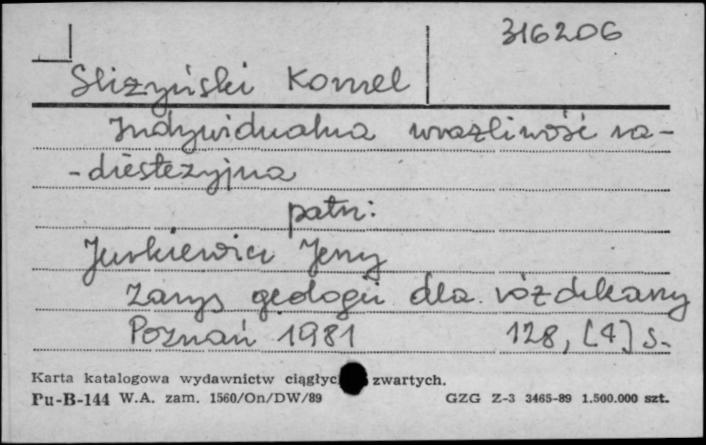 316206
Śliżyński Kornel
Indywidualna wrażliwość ra-
-diestezyjna
patrz:
Jurkiewicz Jerzy
Zarys geologii dla różdżkarzy
Poznań 1981 128, [4] s.
Karta katalogowa wydawnictw ciągłyc zwartych.
Pu-B-144 W.A. zam. 1560/On/DW/89 GZG Z-3 3465-89 1.500.000 szt.